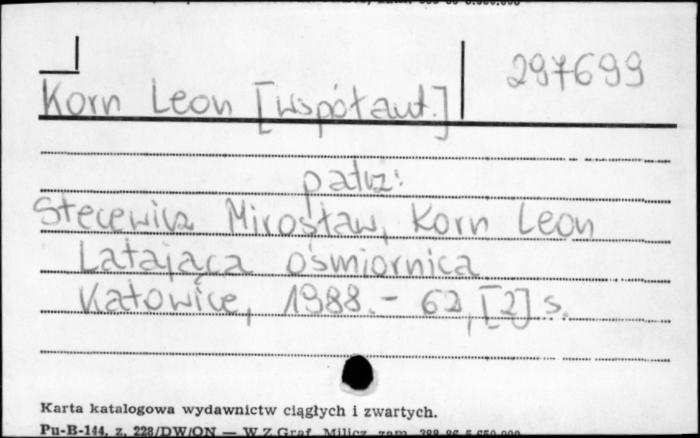 297699
Korn Leon [współaut.]
patrz:
Stecewicz Mirosław, Korn Leon
Latająca ośmiornica
Katowice, 1988. - 62, [2] s.
Karta katalogowa wydawnictw ciągłych i zwartych.
Pu-B-144, z. 228/DW/ON — W.Z.Graf. Milicz, zam.